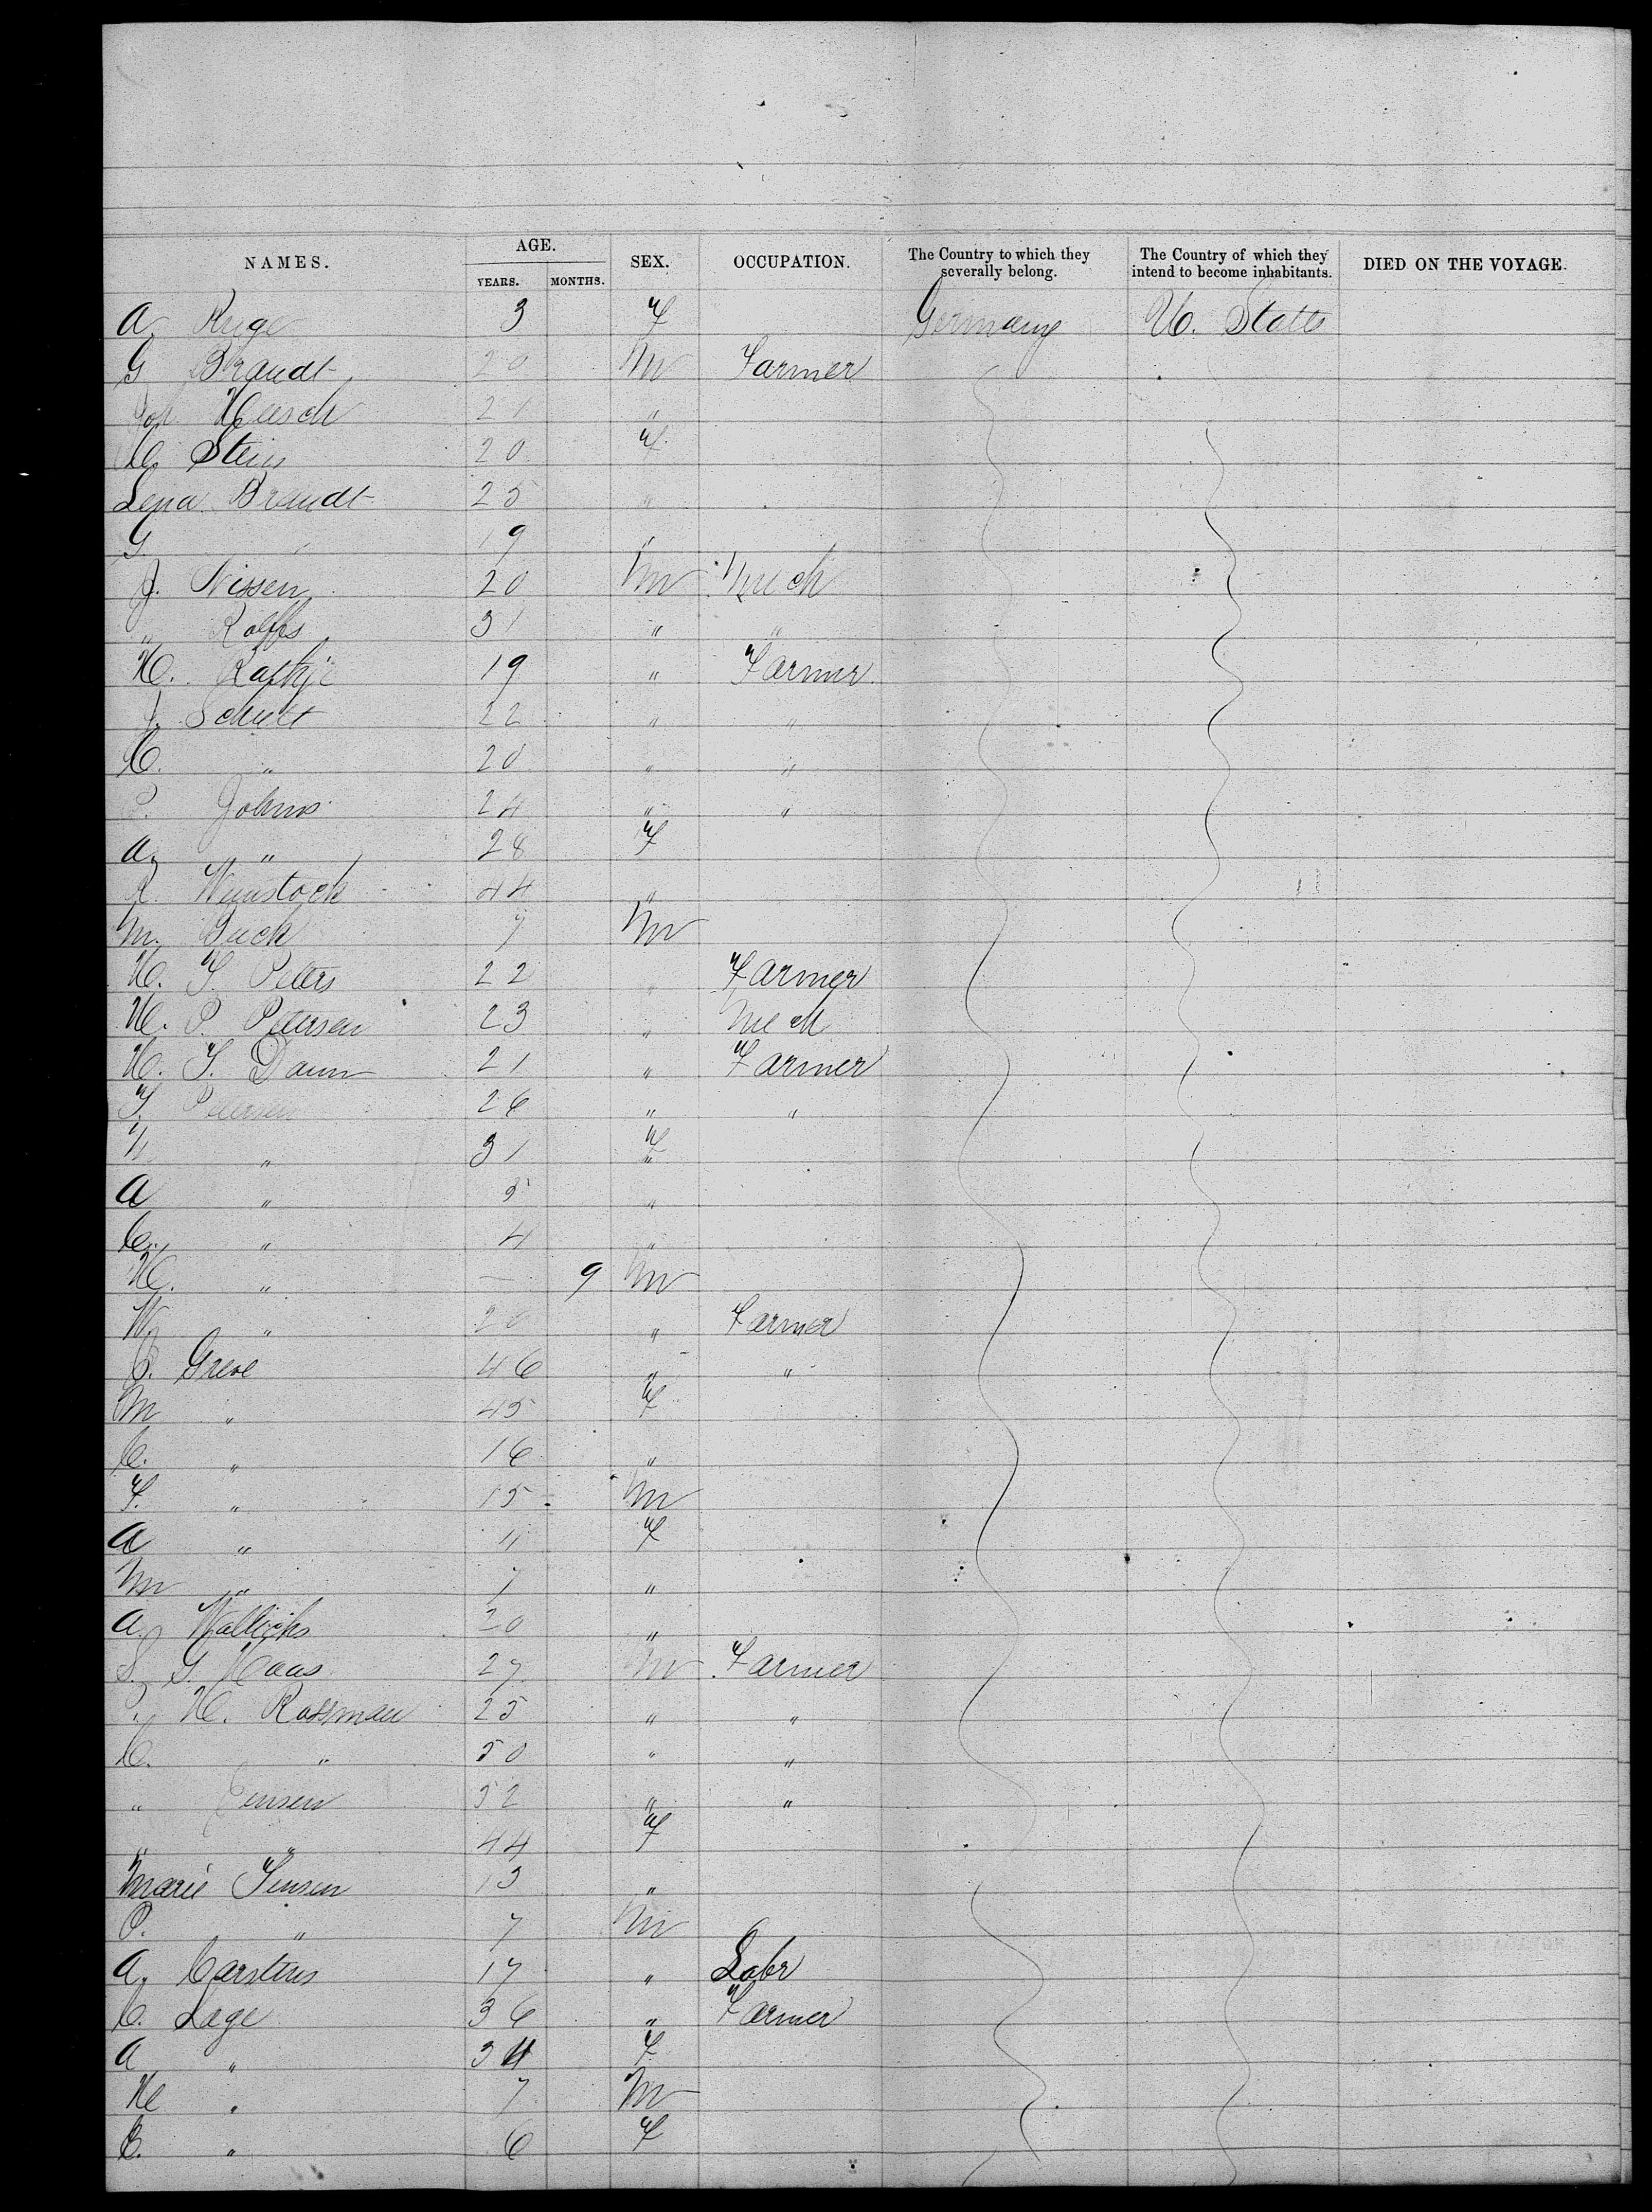 NAMES. AGE. SEX. OCCUPATION. The Country to which they severally belong. The Country of which they intend to become inhabitants. DIED ON THE VOYAGE.
YEARS. MONTHS.
A. Ruge 3 F Germany U. States
G Brandt 20 M Farmer
Joh. Heesch 21 "
C. Stein 20 F
Lena Brandt 25 "
G. " 19 "
J. Nissen 20 M Mech
" Rolffs 31 " "
H. Rathje 19 " Farmer
J. Schult 22 " "
C. " 20 " "
P. Johns 24 " "
A. " 28 F
Weinstock 44 "
M. 7 M
H. F. Peters 22 " Farmer
H. P. Petersen 23 " Mech
H. F. Damm 21 " Farmer
F. Petersen 26 " "
" 31 F
A " 5 "
C. " 4 "
H. " — 9 M
W. " 20 " Farmer
C. Greve 46 " "
M " 45 F
C. " 16 "
F. " 15 M
A " 11 F
M " 7 "
A. Wallichs 20 "
S. G. Haas 27 M Farmer
P. H. Rossman 25 " "
C. " 50 " "
" Jensen 52 " "
" " 44 F
Marie Jensen 13 "
P. " 7 M
A. Carstens 17 " Labr
C. Lage 36 " Farmer
A " 34 F
H " 7 M
C. " 6 F